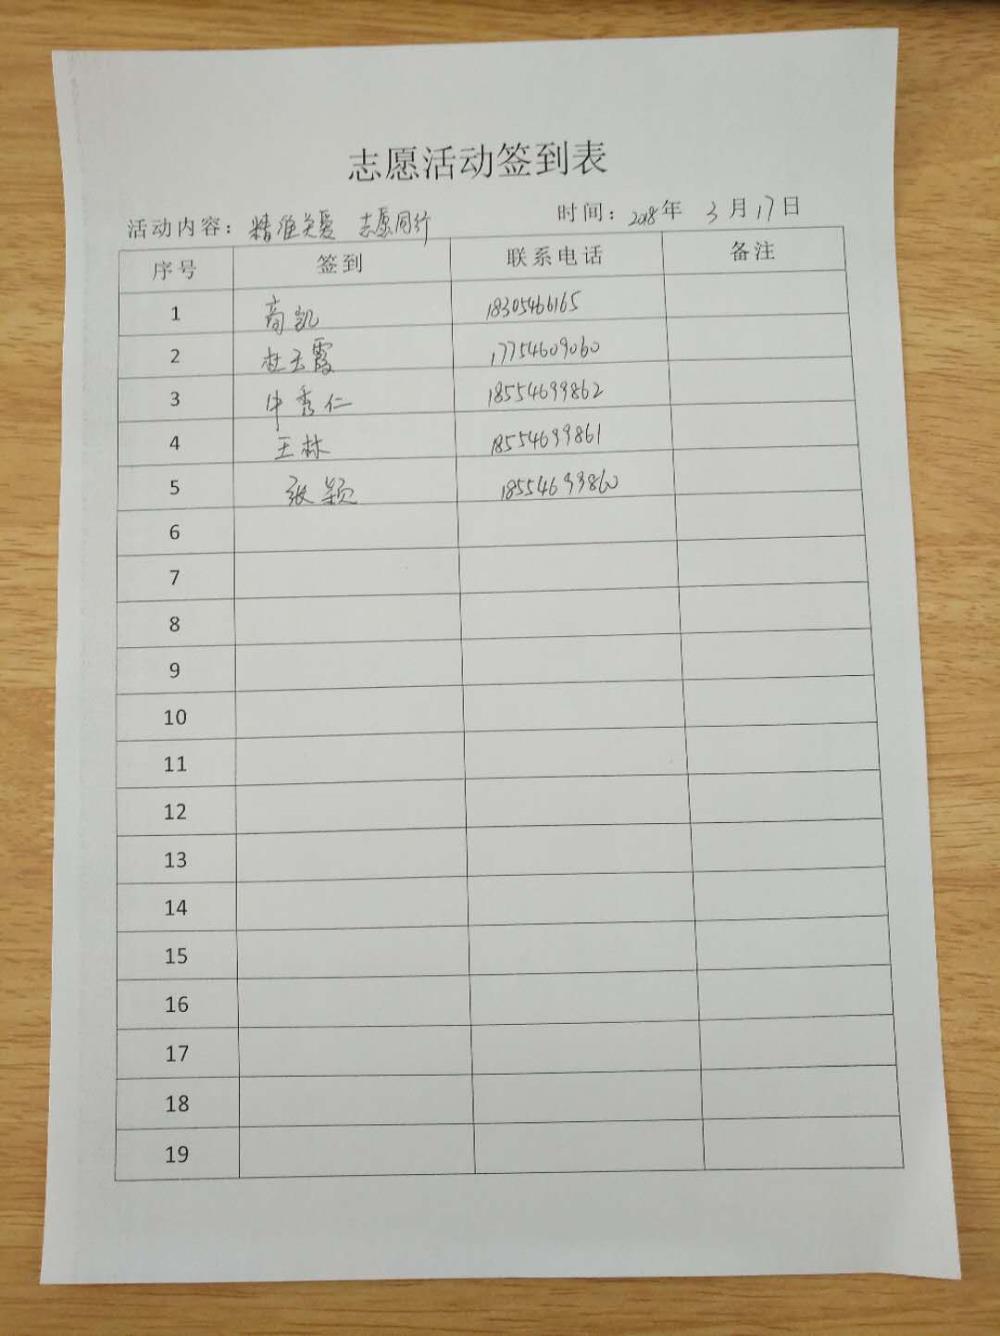 志愿活动签到表
活动内容：精准关爱 志愿同行 时间：2018年 3月17日
序号 签到 联系电话 备注
1 高凯 18305466165
2 杜玉霞 17754609060
3 牛秀仁 18554699862
4 王林 18554699861
5 张颖 18554699860
6
7
8
9
10
11
12
13
14
15
16
17
18
19